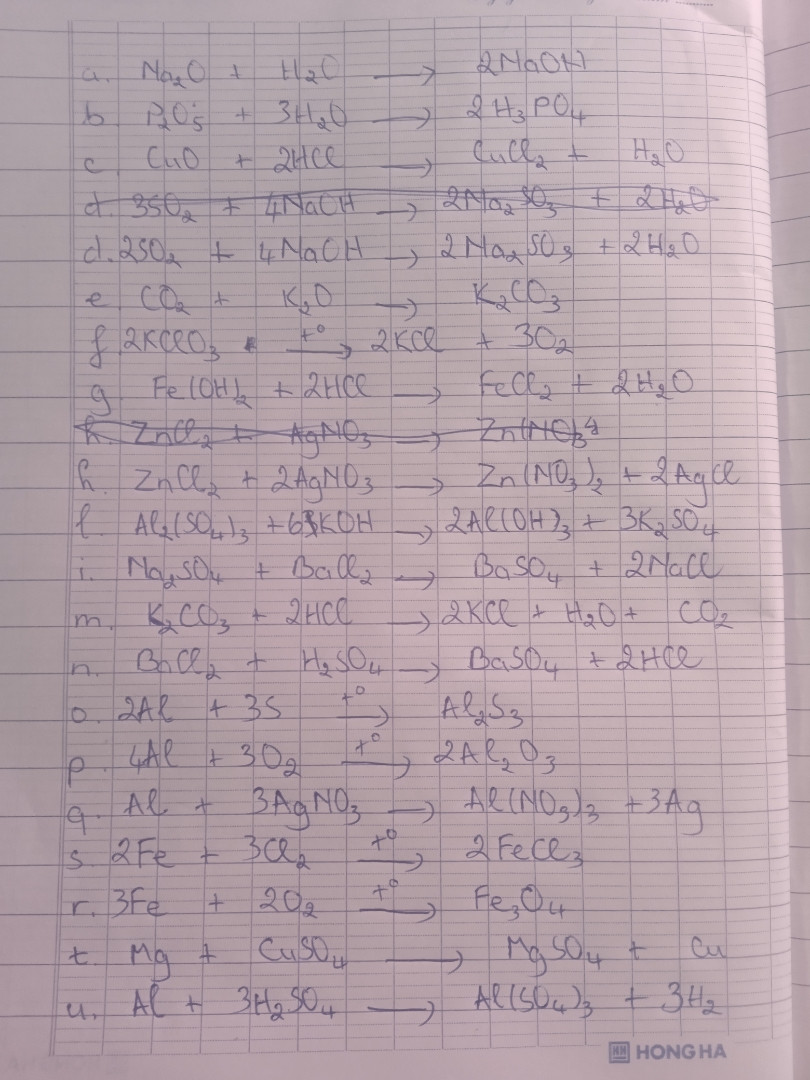 a. Na₂O + H₂O → 2NaOH
b P₂O₅ + 3H₂O → 2H₃PO₄
c CuO + 2HCl → CuCl₂ + H₂O
d. 3SO₂ + 4NaOH → 2Na₂SO₃ + 2H₂O
d. 2SO₂ + 4NaOH → 2Na₂SO₃ + 2H₂O
e CO₂ + K₂O → K₂CO₃
f 2KClO₃ t° → 2KCl + 3O₂
g Fe(OH)₂ + 2HCl → FeCl₂ + 2H₂O
h. ZnCl₂ + AgNO₃ → Zn(NO₃
h. ZnCl₂ + 2AgNO₃ → Zn(NO₃)₂ + 2AgCl
l. Al₂(SO₄)₃ + 6KOH → 2Al(OH)₃ + 3K₂SO₄
i. Na₂SO₄ + BaCl₂ → BaSO₄ + 2NaCl
m. K₂CO₃ + 2HCl → 2KCl + H₂O + CO₂
n. BaCl₂ + H₂SO₄ → BaSO₄ + 2HCl
o. 2Al + 3S t° → Al₂S₃
p. 4Al + 3O₂ t° → 2Al₂O₃
q. Al + 3AgNO₃ → Al(NO₃)₃ + 3Ag
s. 2Fe + 3Cl₂ t° → 2FeCl₃
r. 3Fe + 2O₂ t° → Fe₃O₄
t. Mg + CuSO₄ → MgSO₄ + Cu
u. Al + 3H₂SO₄ → Al(SO₄)₃ + 3H₂
HH HONG HA